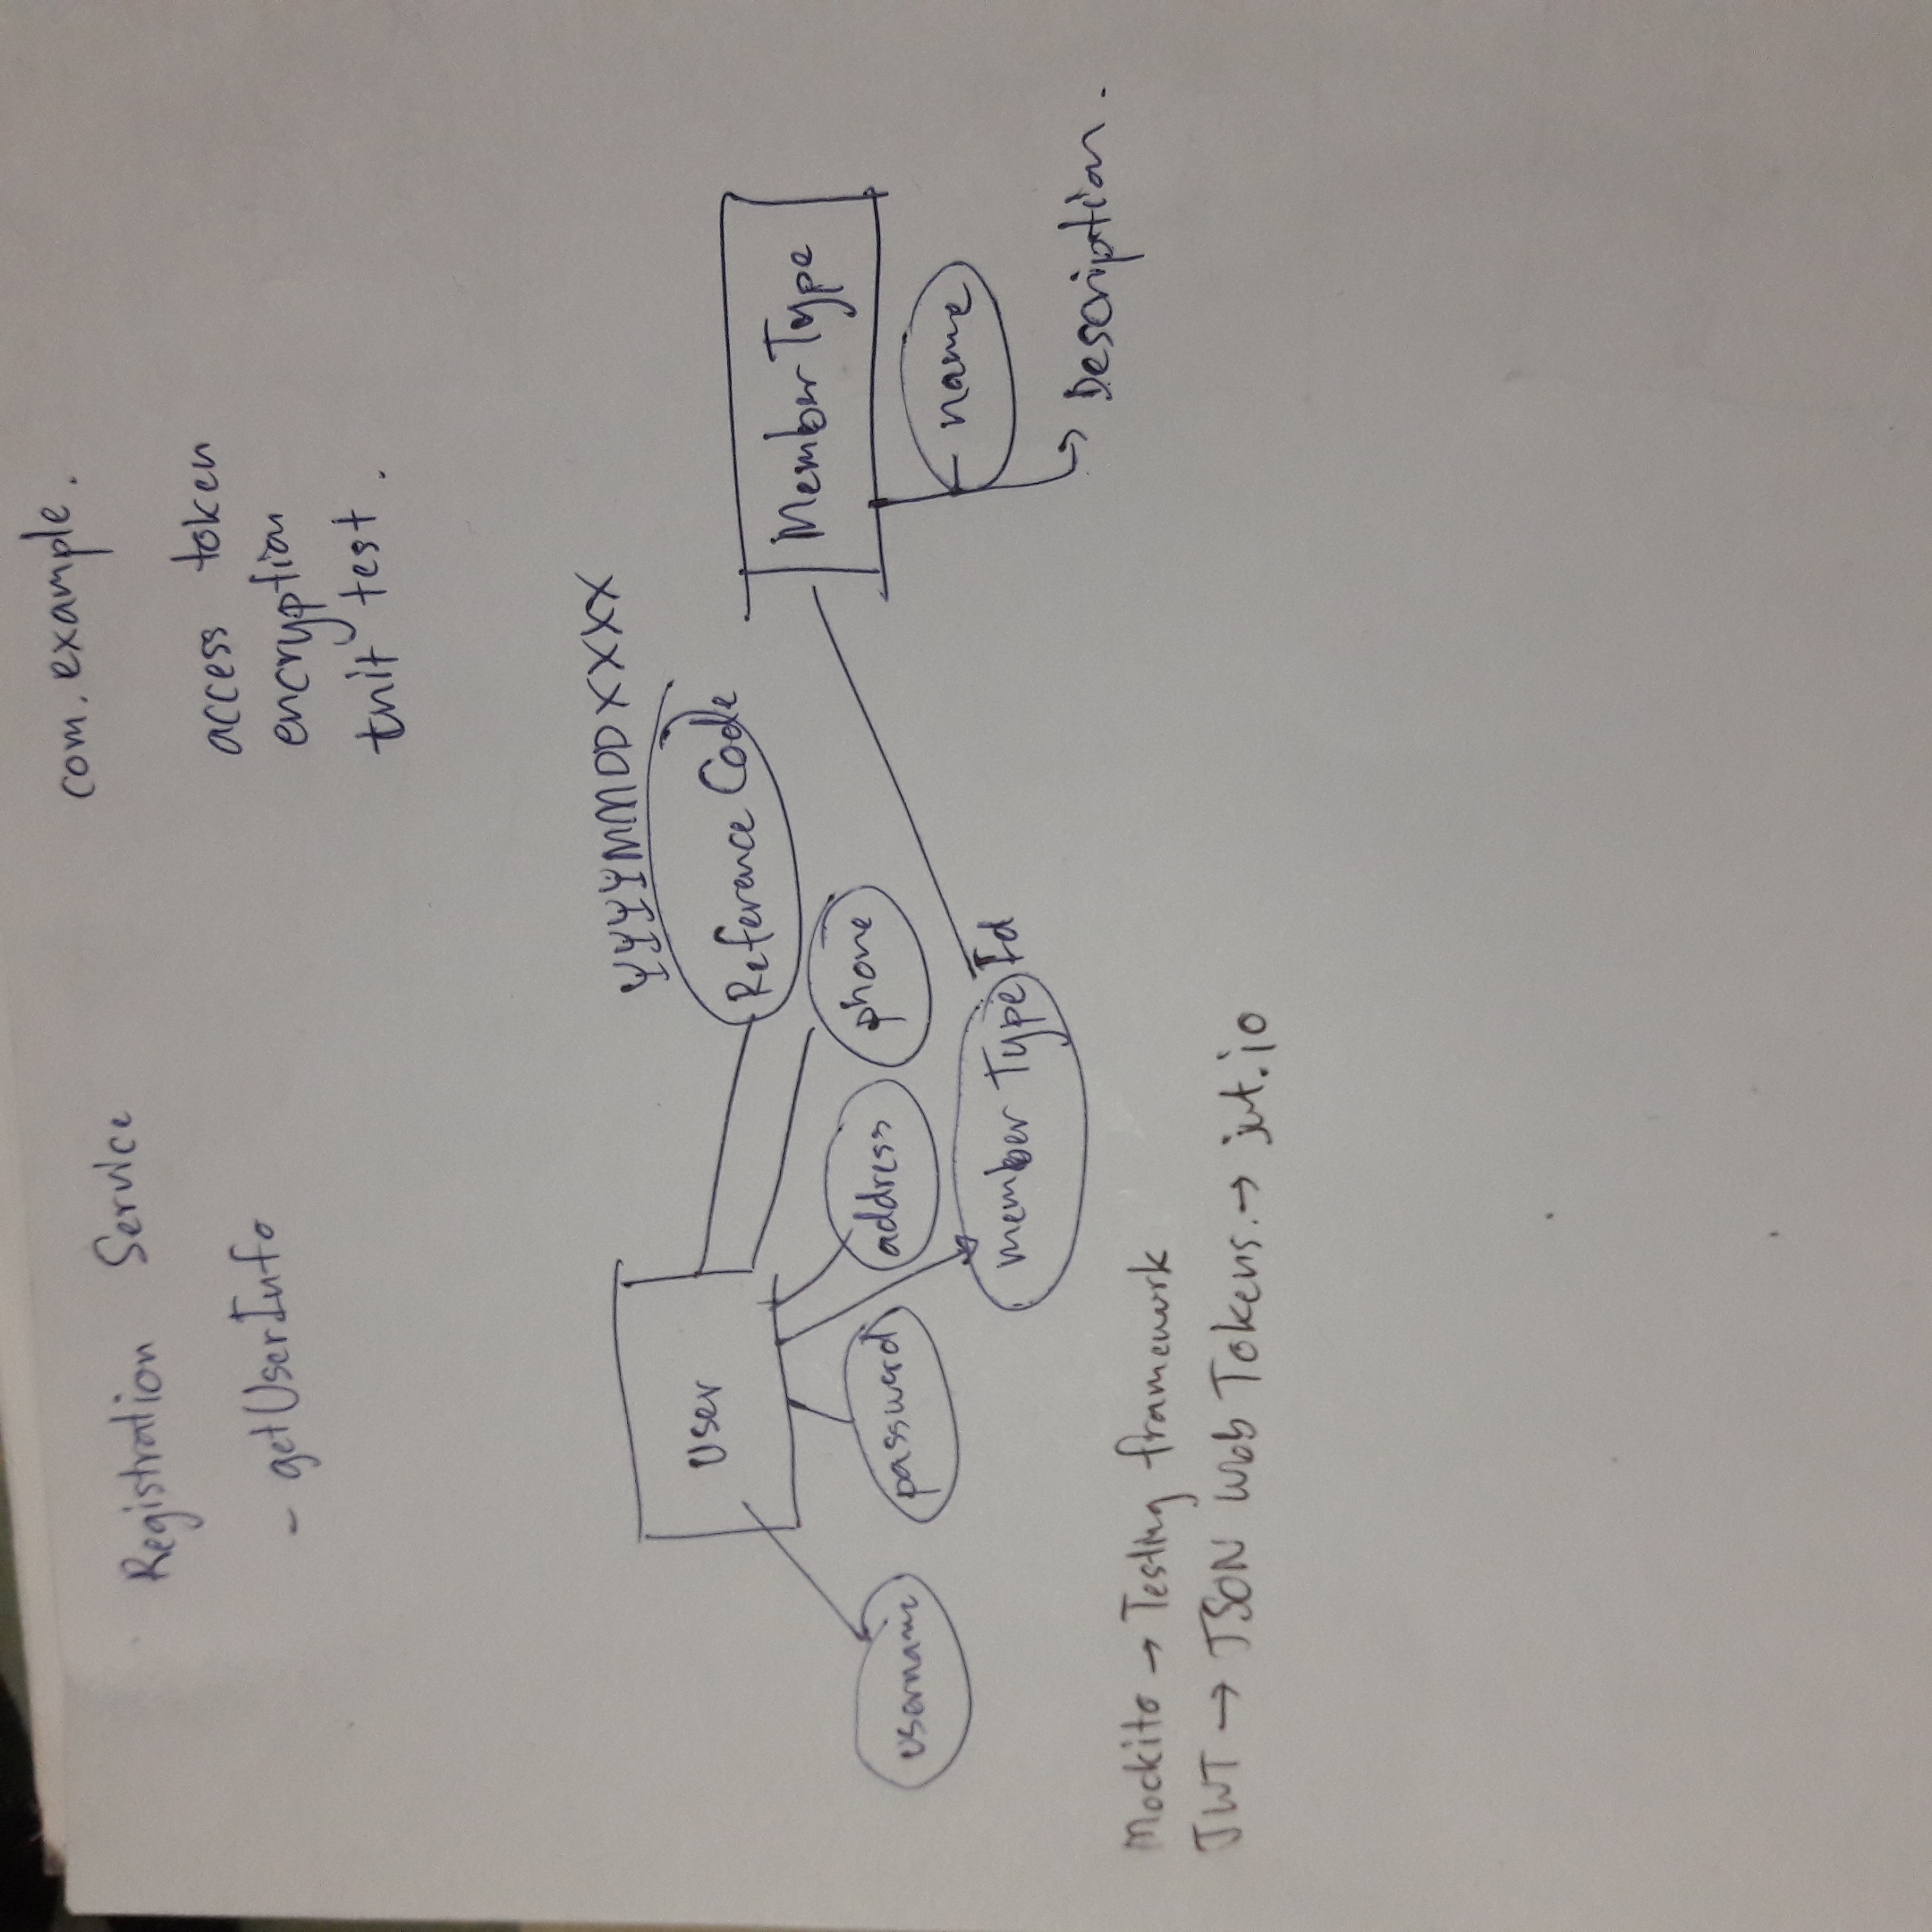 Registration Service
- getUserInfo
com.example.
access token
encryption
tnit test.
User
YYYYMMDDXXXX
Reference Code
Member Type
username
password
address
phone
member Type Id
name
Description.
Mockito → Testing framework
JWT → JSON Web Tokens. → jwt.io